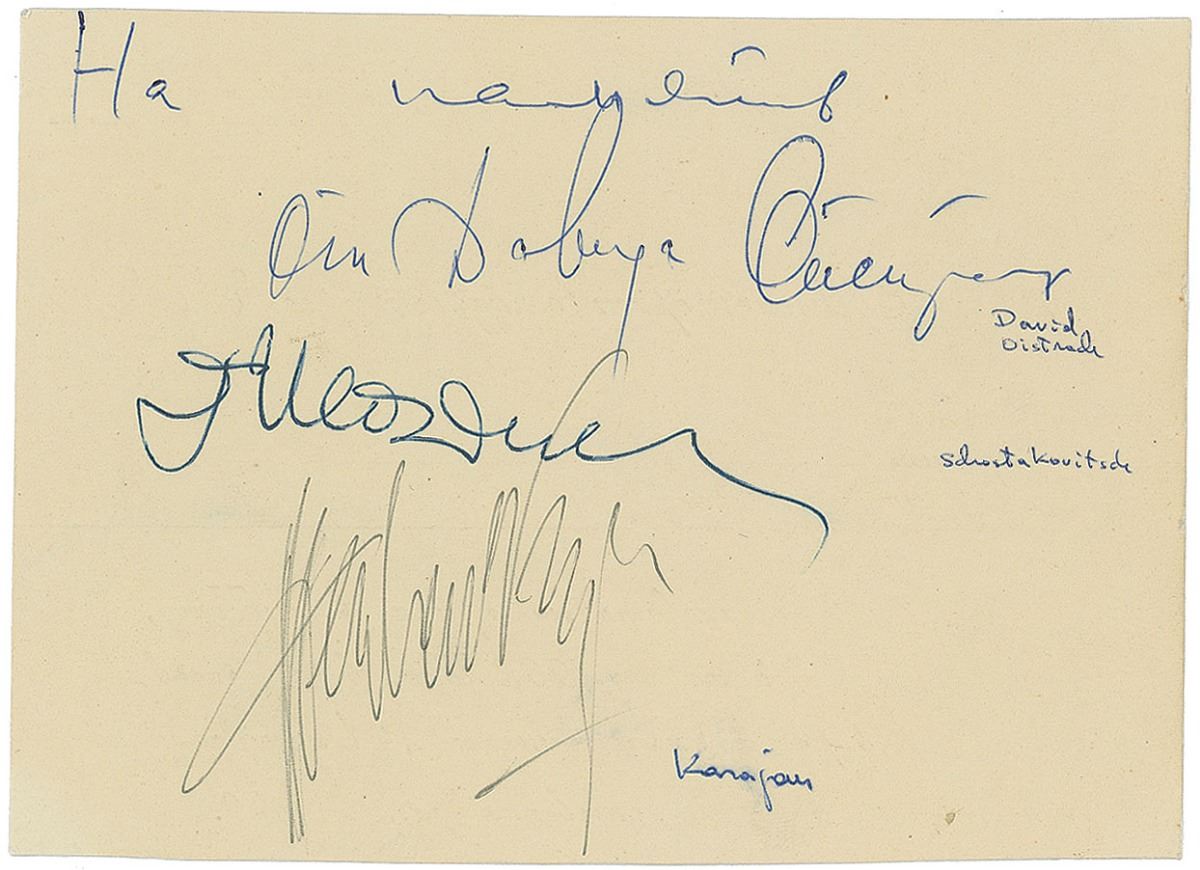 На память
от Давида Ойстрах
David
Oistrach
Schostakovitsch
Karajan